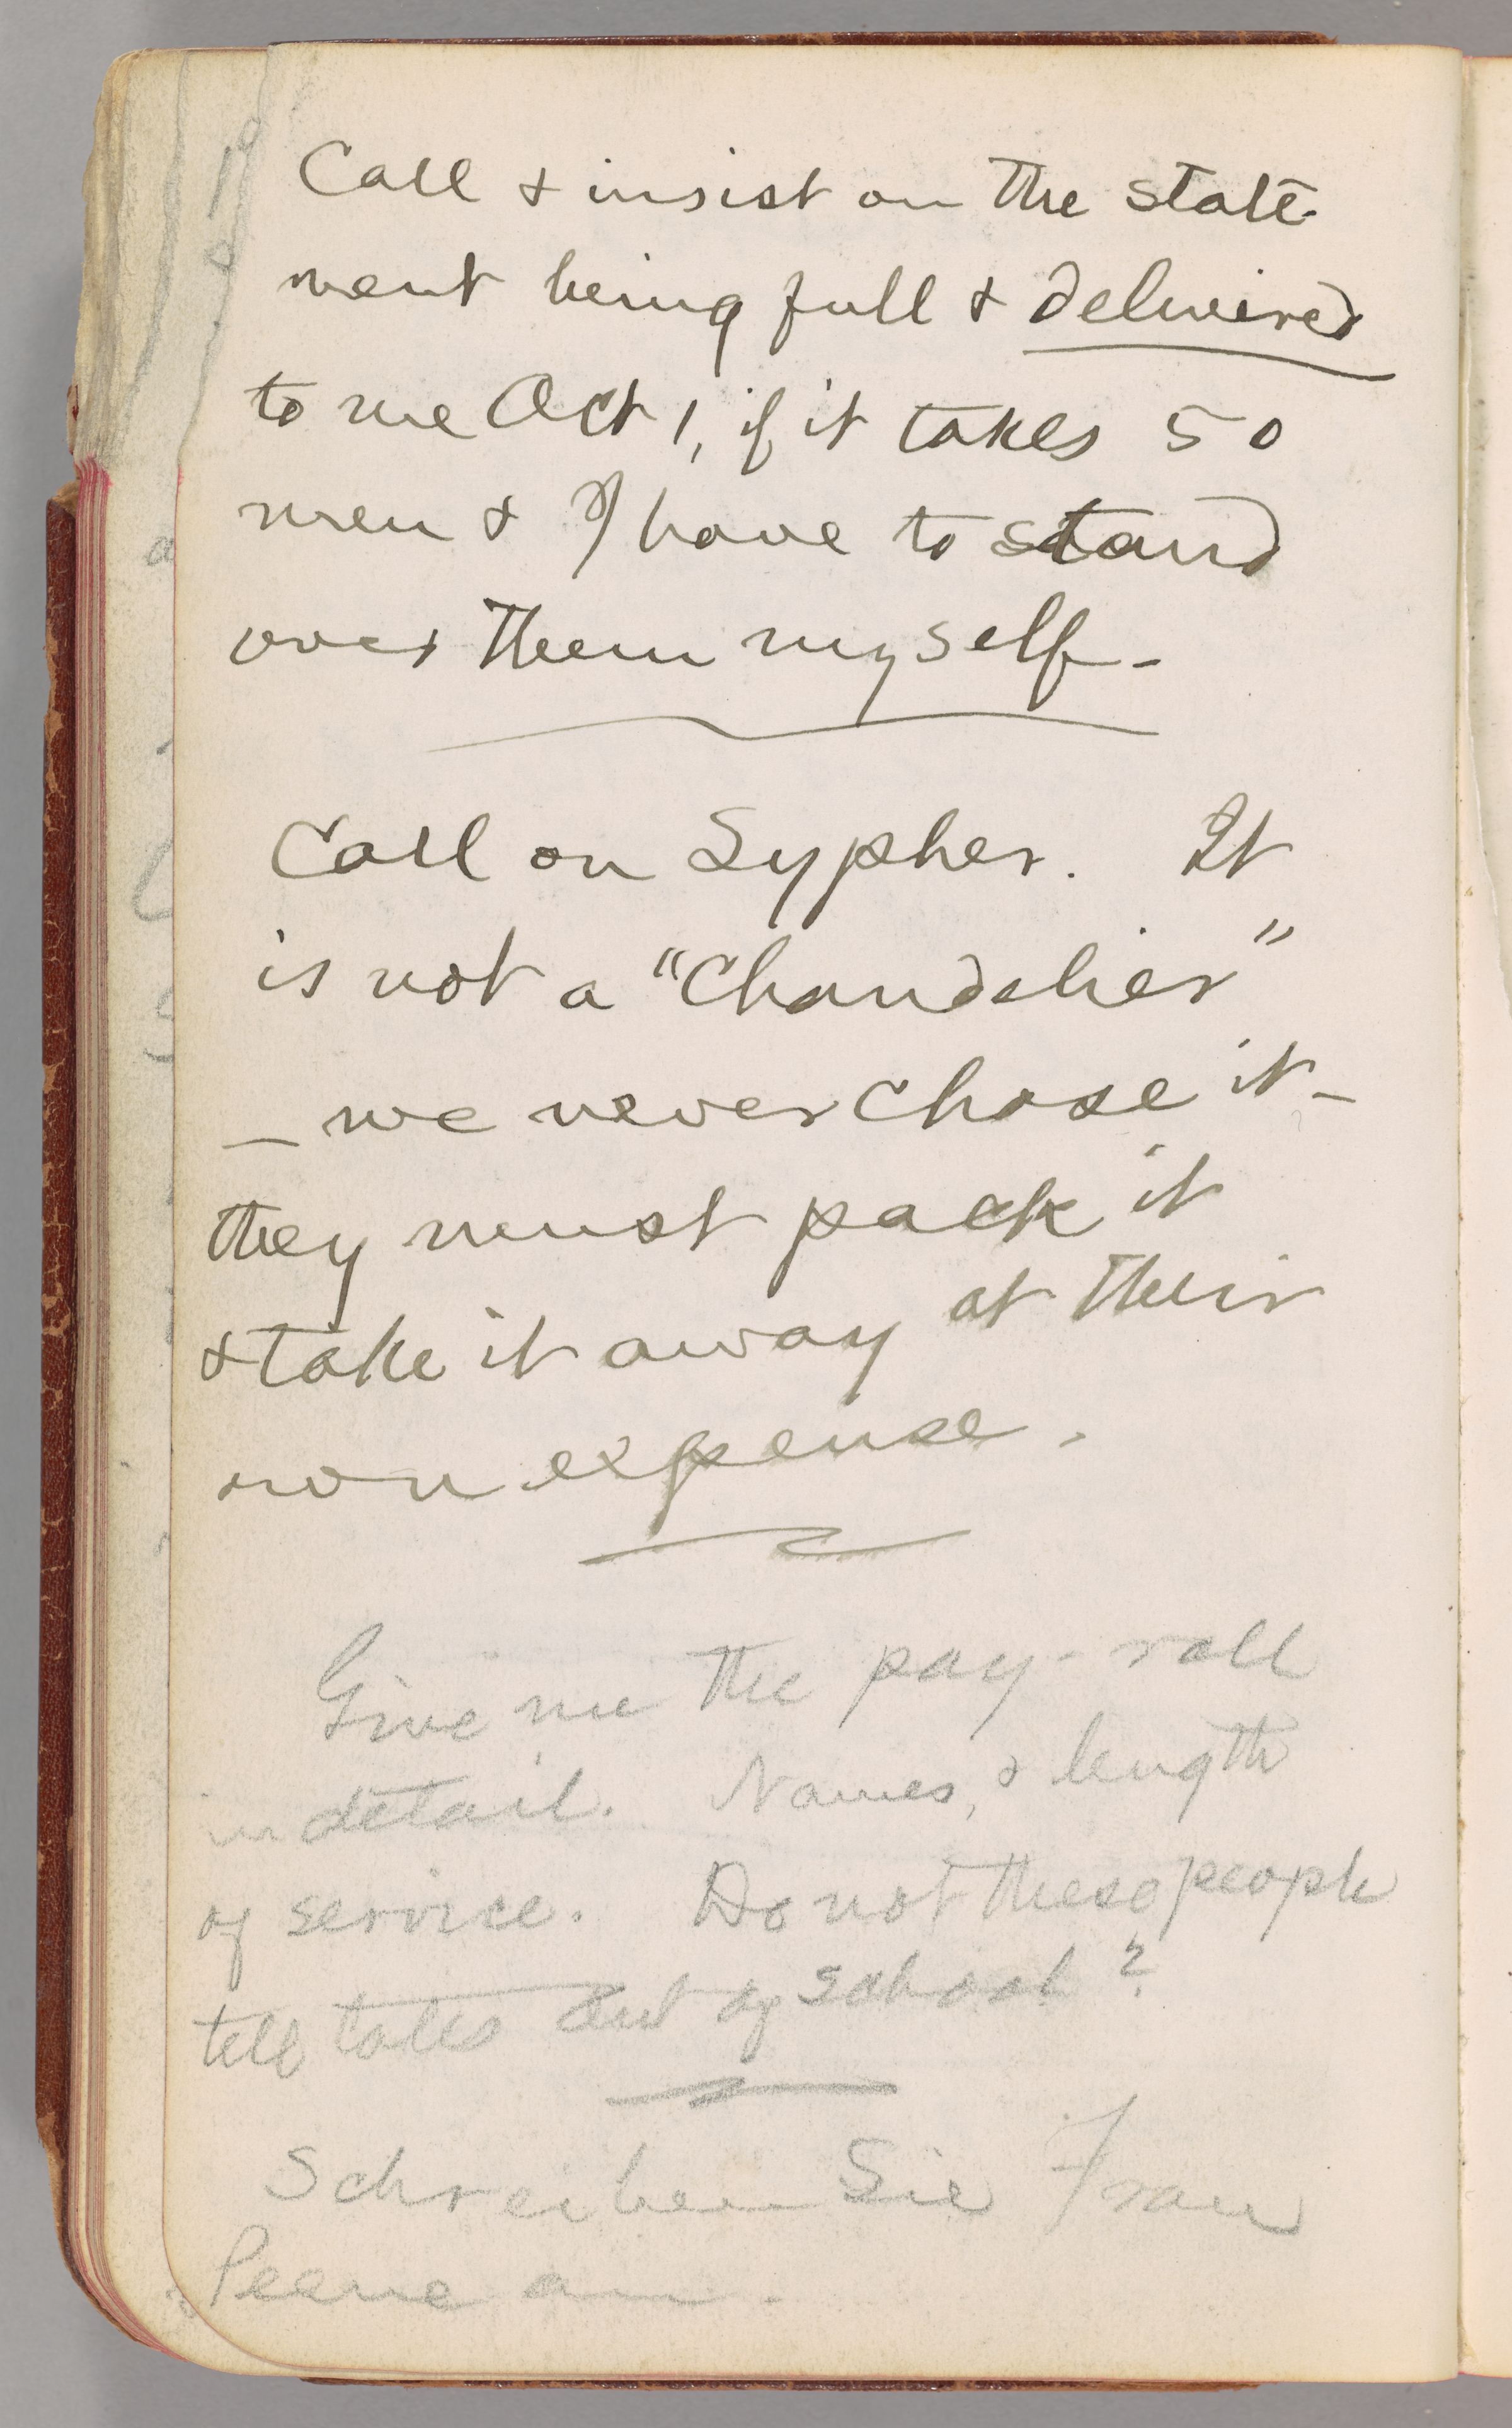 Call & insist on the state-
ment being full & delivered
to me Oct 1, if it takes 50
men & I have to stand
over them myself—
Call on Sypher. It
is not a "Chandelier"
— we never chose it —
they must pack it
& take it away at their
own expense.
Give me the pay-roll
in detail. Names, & length
of service. Do not these people
tell tales out of school?
Schreiben Sie Frau
an.